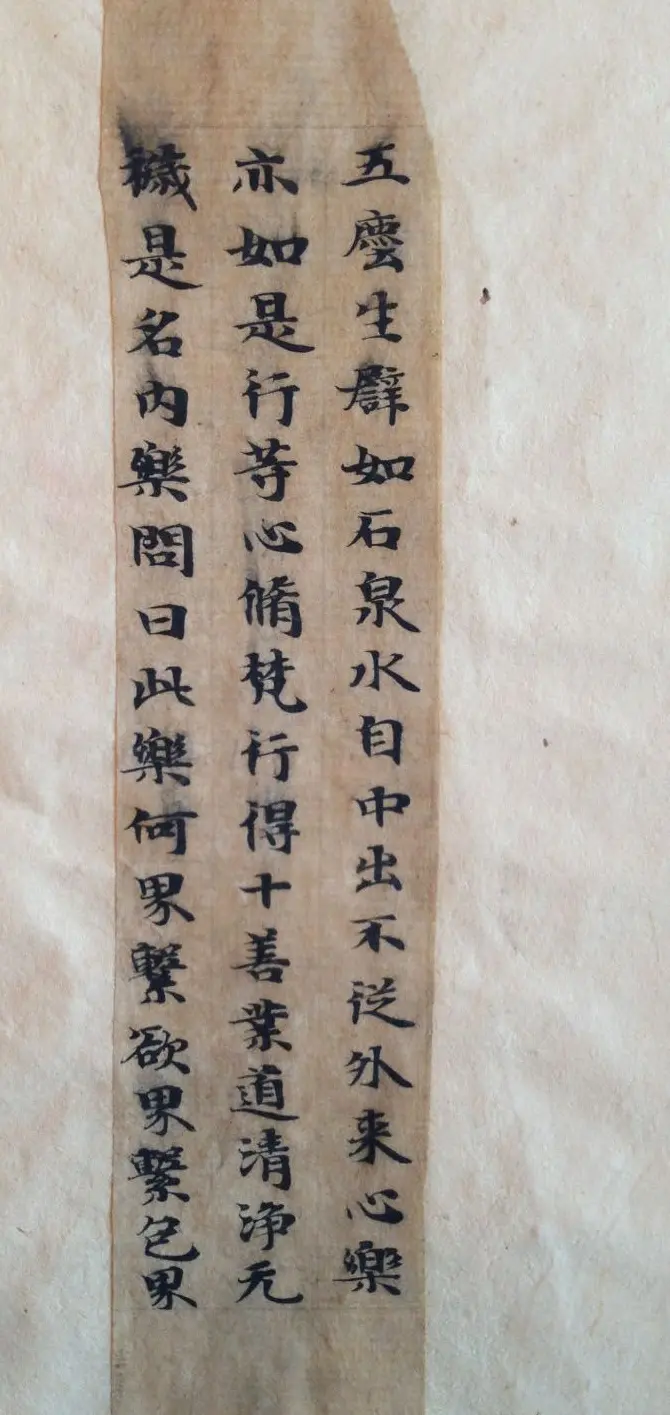 五塵生譬如石泉水自中出不従外来心樂
亦如是行等心脩梵行得十善業道清浄无
穢是名内樂問曰此樂何界繫欲界繫色界